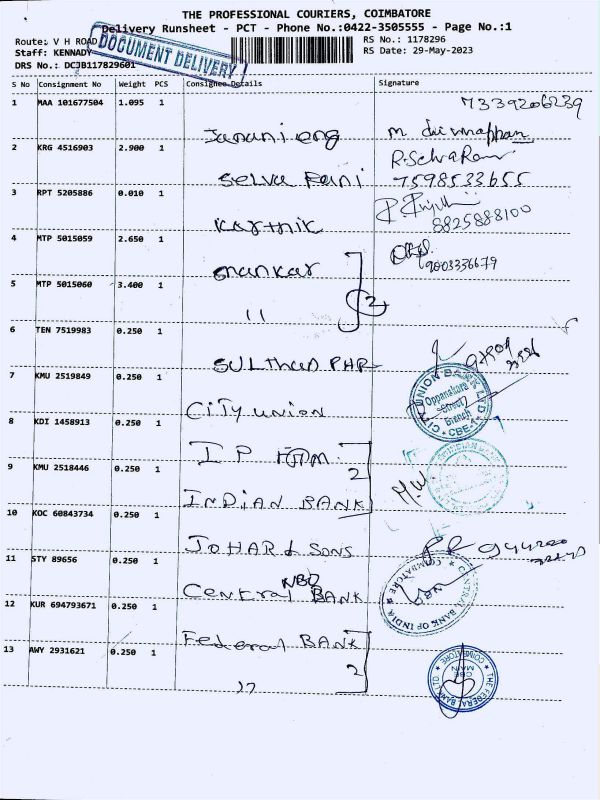 THE PROFESSIONAL COURIERS, COIMBATORE
Delivery Runsheet - PCT - Phone No.:0422-3505555 - Page No.:1
Route: V H ROAD
RS No.: 1178296
Staff: KENNADY
RS Date: 29-May-2023
DOCUMENT DELIVERY
DRS No.: DCJB117829601
S No Consignment No Weight PCS Consignee Details Signature
1 MAA 101677504 1.095 1
7339206239
Janani eng
2 KRG 4516903 2.900 1
Selva Rani
7598533655
3 RPT 5205886 0.010 1
8825888100
Karthik
4 MTP 5015059 2.650 1
Onankar
9003336679
5 MTP 5015060 3.400 1
11 2
6 TEN 7519983 0.250 1
SULTHAN PHR
7 KMU 2519849 0.250 1
CITY UNION
CITY UNION BANK LTD
Oppanakara Street Branch
CBE-1
8 KDI 1458913 0.250 1
I P
9 KMU 2518446 0.250 1
INDIAN BANK
2
10 KOC 60843734 0.250 1
JOHAR & SONS
11 STY 89656 0.250 1
Central NBO BANK
12 KUR 694793671 0.250 1
Federal BANK
13 AWY 2931621 0.250 1
2
THE FEDERAL BANK LTD
CBE MAIN
COIMBATORE